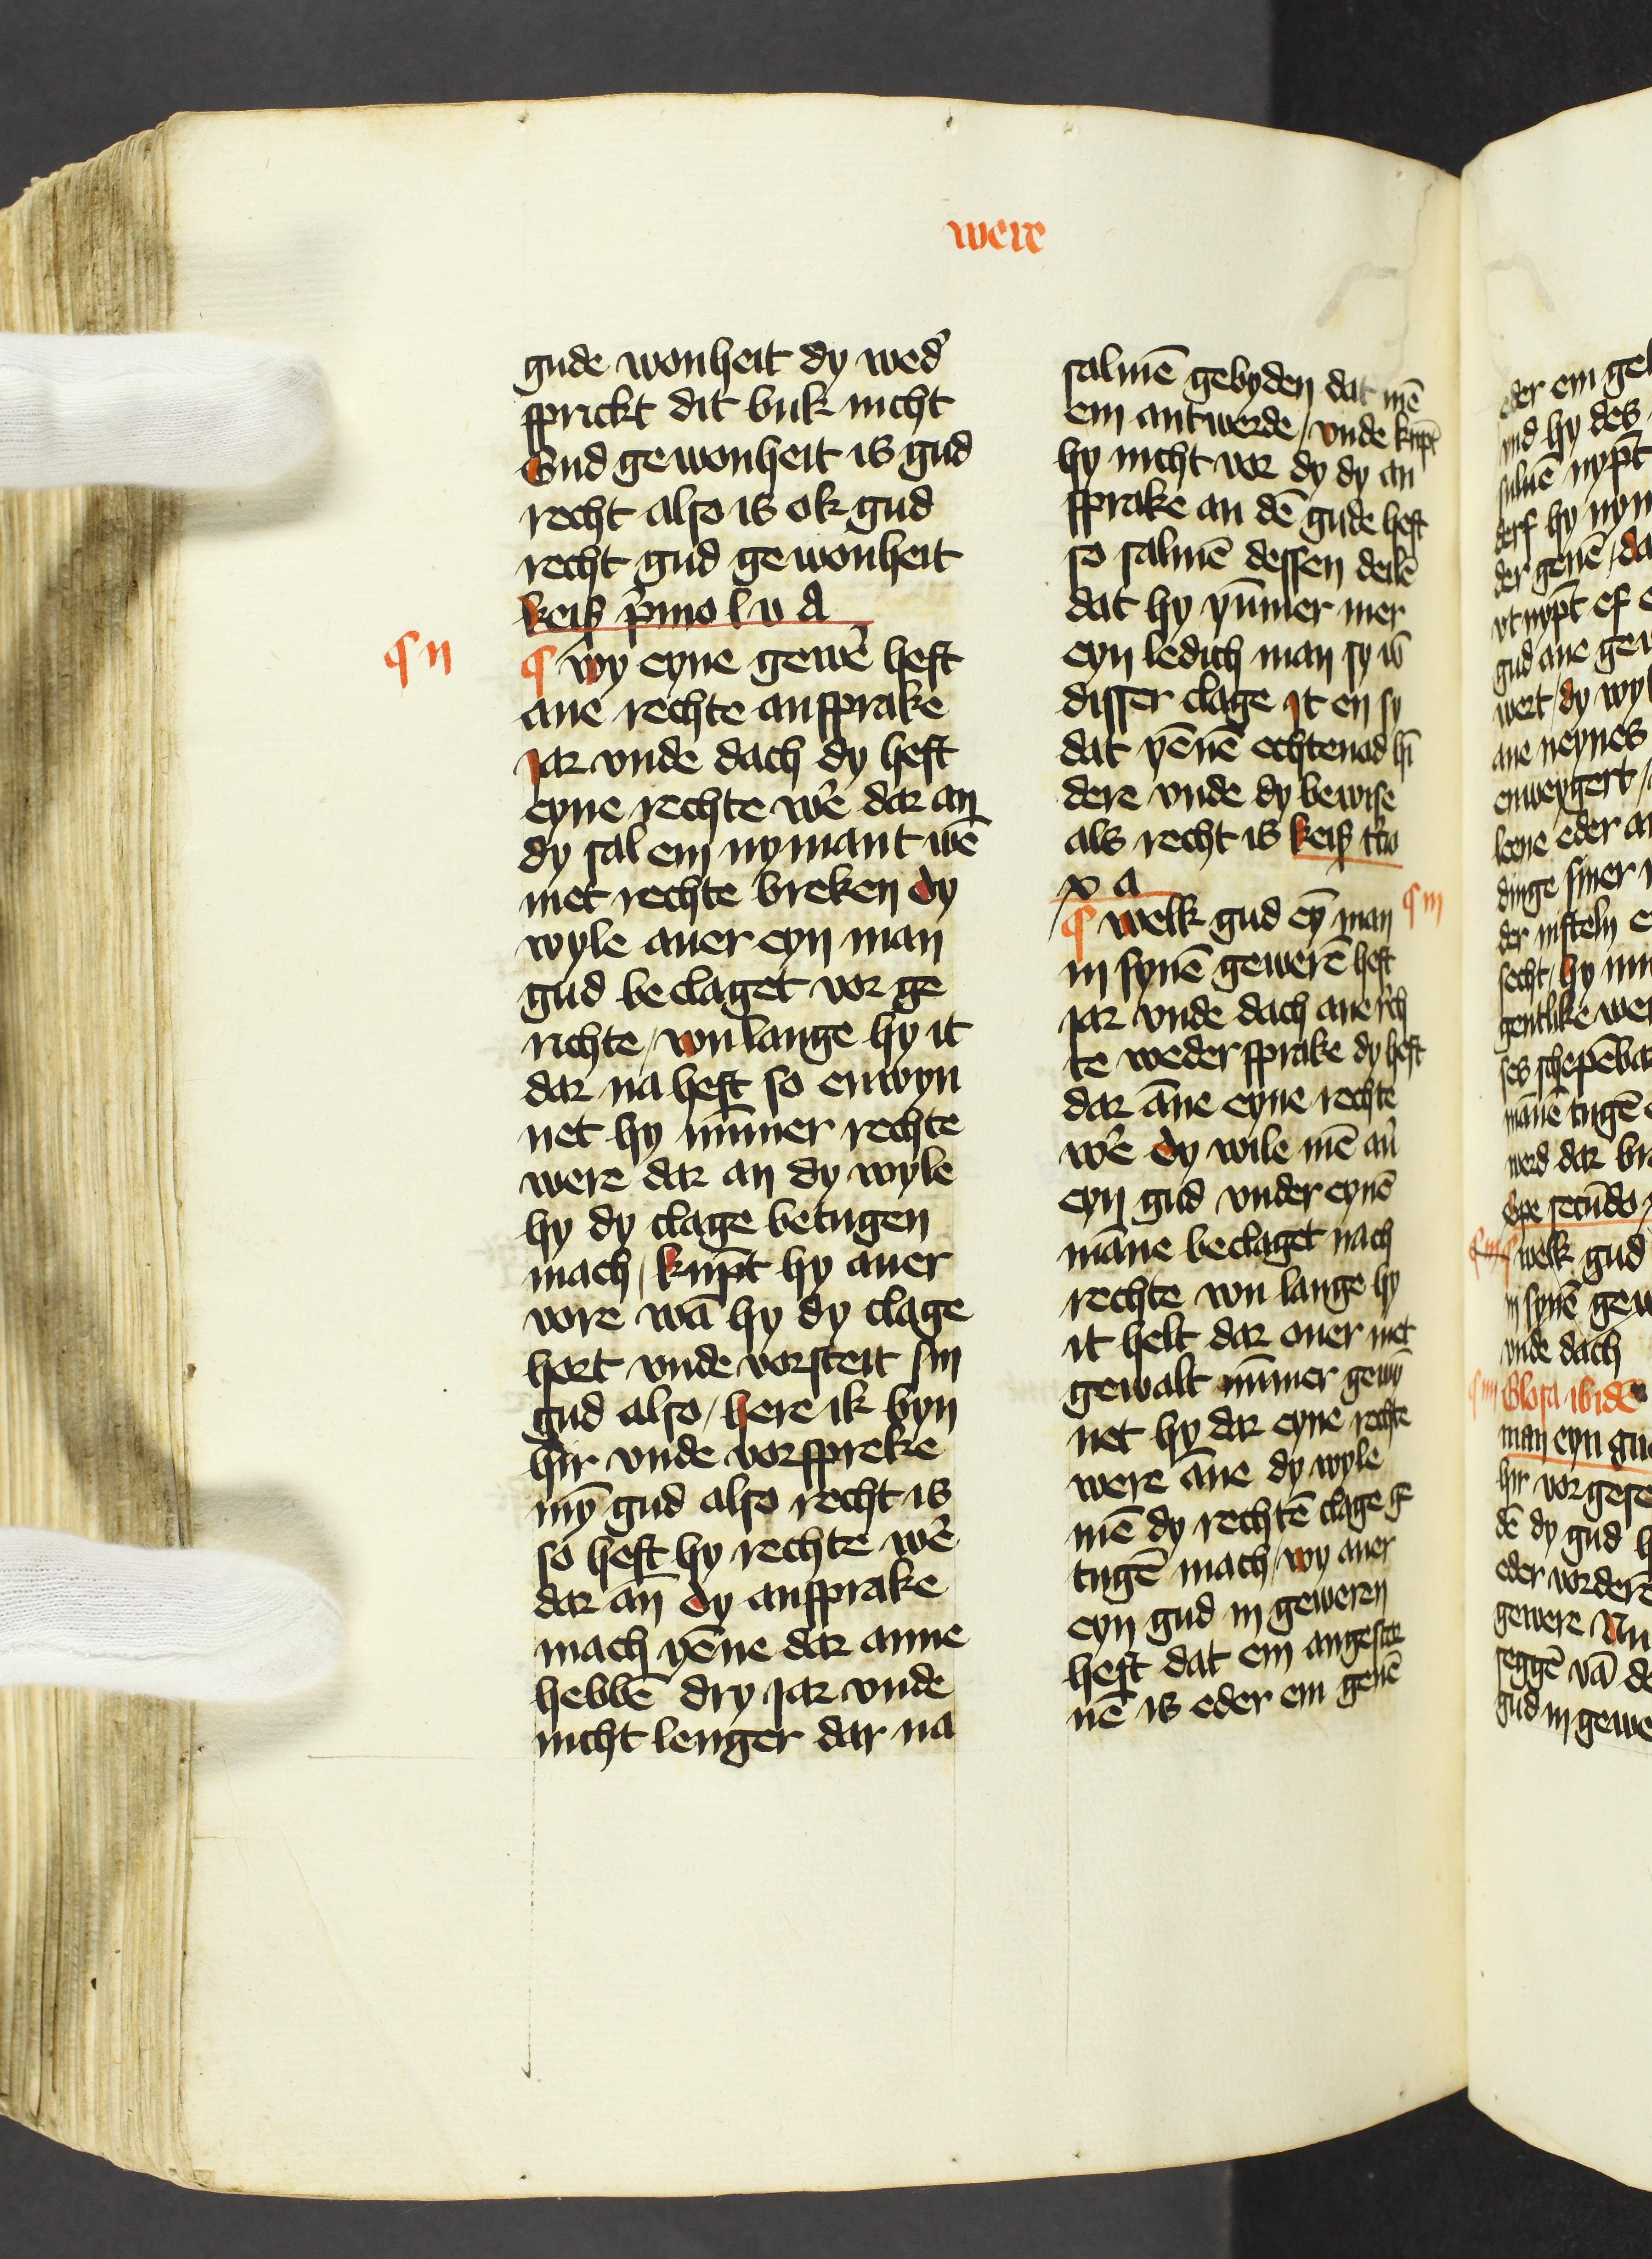 were
gude wonheit dy wed᷑
sprickt dit buk nicht
Gud gewonheit is gud
recht also is ok gud
recht gud gewonheit
keiß p᷑mo l v A
¶ ii
¶ wy eyne gewe᷑ heft
ane rechte ansprake
jar vnde dach dy heft
eyne rechte we᷑ dar an
dy sal em nymant wē
met rechte breken dy
wyle auer eyn man
gud beclaget vor ge
richte / wu lange hy it
dar na heft so enwyn
net hy nūmer rechte
were dar an dy wyle
hy dy clage betugen
mach / kūpt hy auer
vore wā hy dy clage
hort vnde vorsteit sin
gud also / here ik byn
hir vnde vorspreke
mȳ gud also recht is
so heft hy rechte we᷑
dar an dy ansprake
mach yēne dar anne
hebbē dry jar vnde
nicht lenger dar na
salmē gebyden dat mē
em antwerde / vnde kūpt
hy nicht vor dy dy an
sprake an dē gude heft
so salmē dessen deilē
dat hy yūmer mer
eyn ledich man sy vō
disser clage it en sy
dat yēnē echtenod hī
dere vnde dy bewise
als recht is keiß t᷑cio
x a
¶ iii
¶ welk gud eȳ man
in synē gewerē heft
jar vnde dach ane rech
te weder sprake dy heft
dar āne eyne rechte
we᷑ dy wile mē au᷑
eyn gud vnder eynē
māne beclaget nach
rechte wu lange hy
it helt dar ouer met
gewalt nūmer gewȳ
net hy dar eyne rechte
were āne dy wyle
mē dy rechtē clage ge
tugē mach / wy auer
eyn gud in geweren
heft dat em angestor
uē is eder em geuē
eder em
vnd hy des
suluē nypt
derf hy nym
der geuē / da
vt nypt ef
gud ane
wert / dy
ane neynes
enweygert /
leene eder
dinge siner
secht / hy
gentlike
māne tugē
werd dar
secūdo
¶ welk gud
in synē
vnde dach
¶ iiii Glosa ibidē
man eyn
hir vor
dē dy gud
eder
gewere Nu
seggē vā
gud in